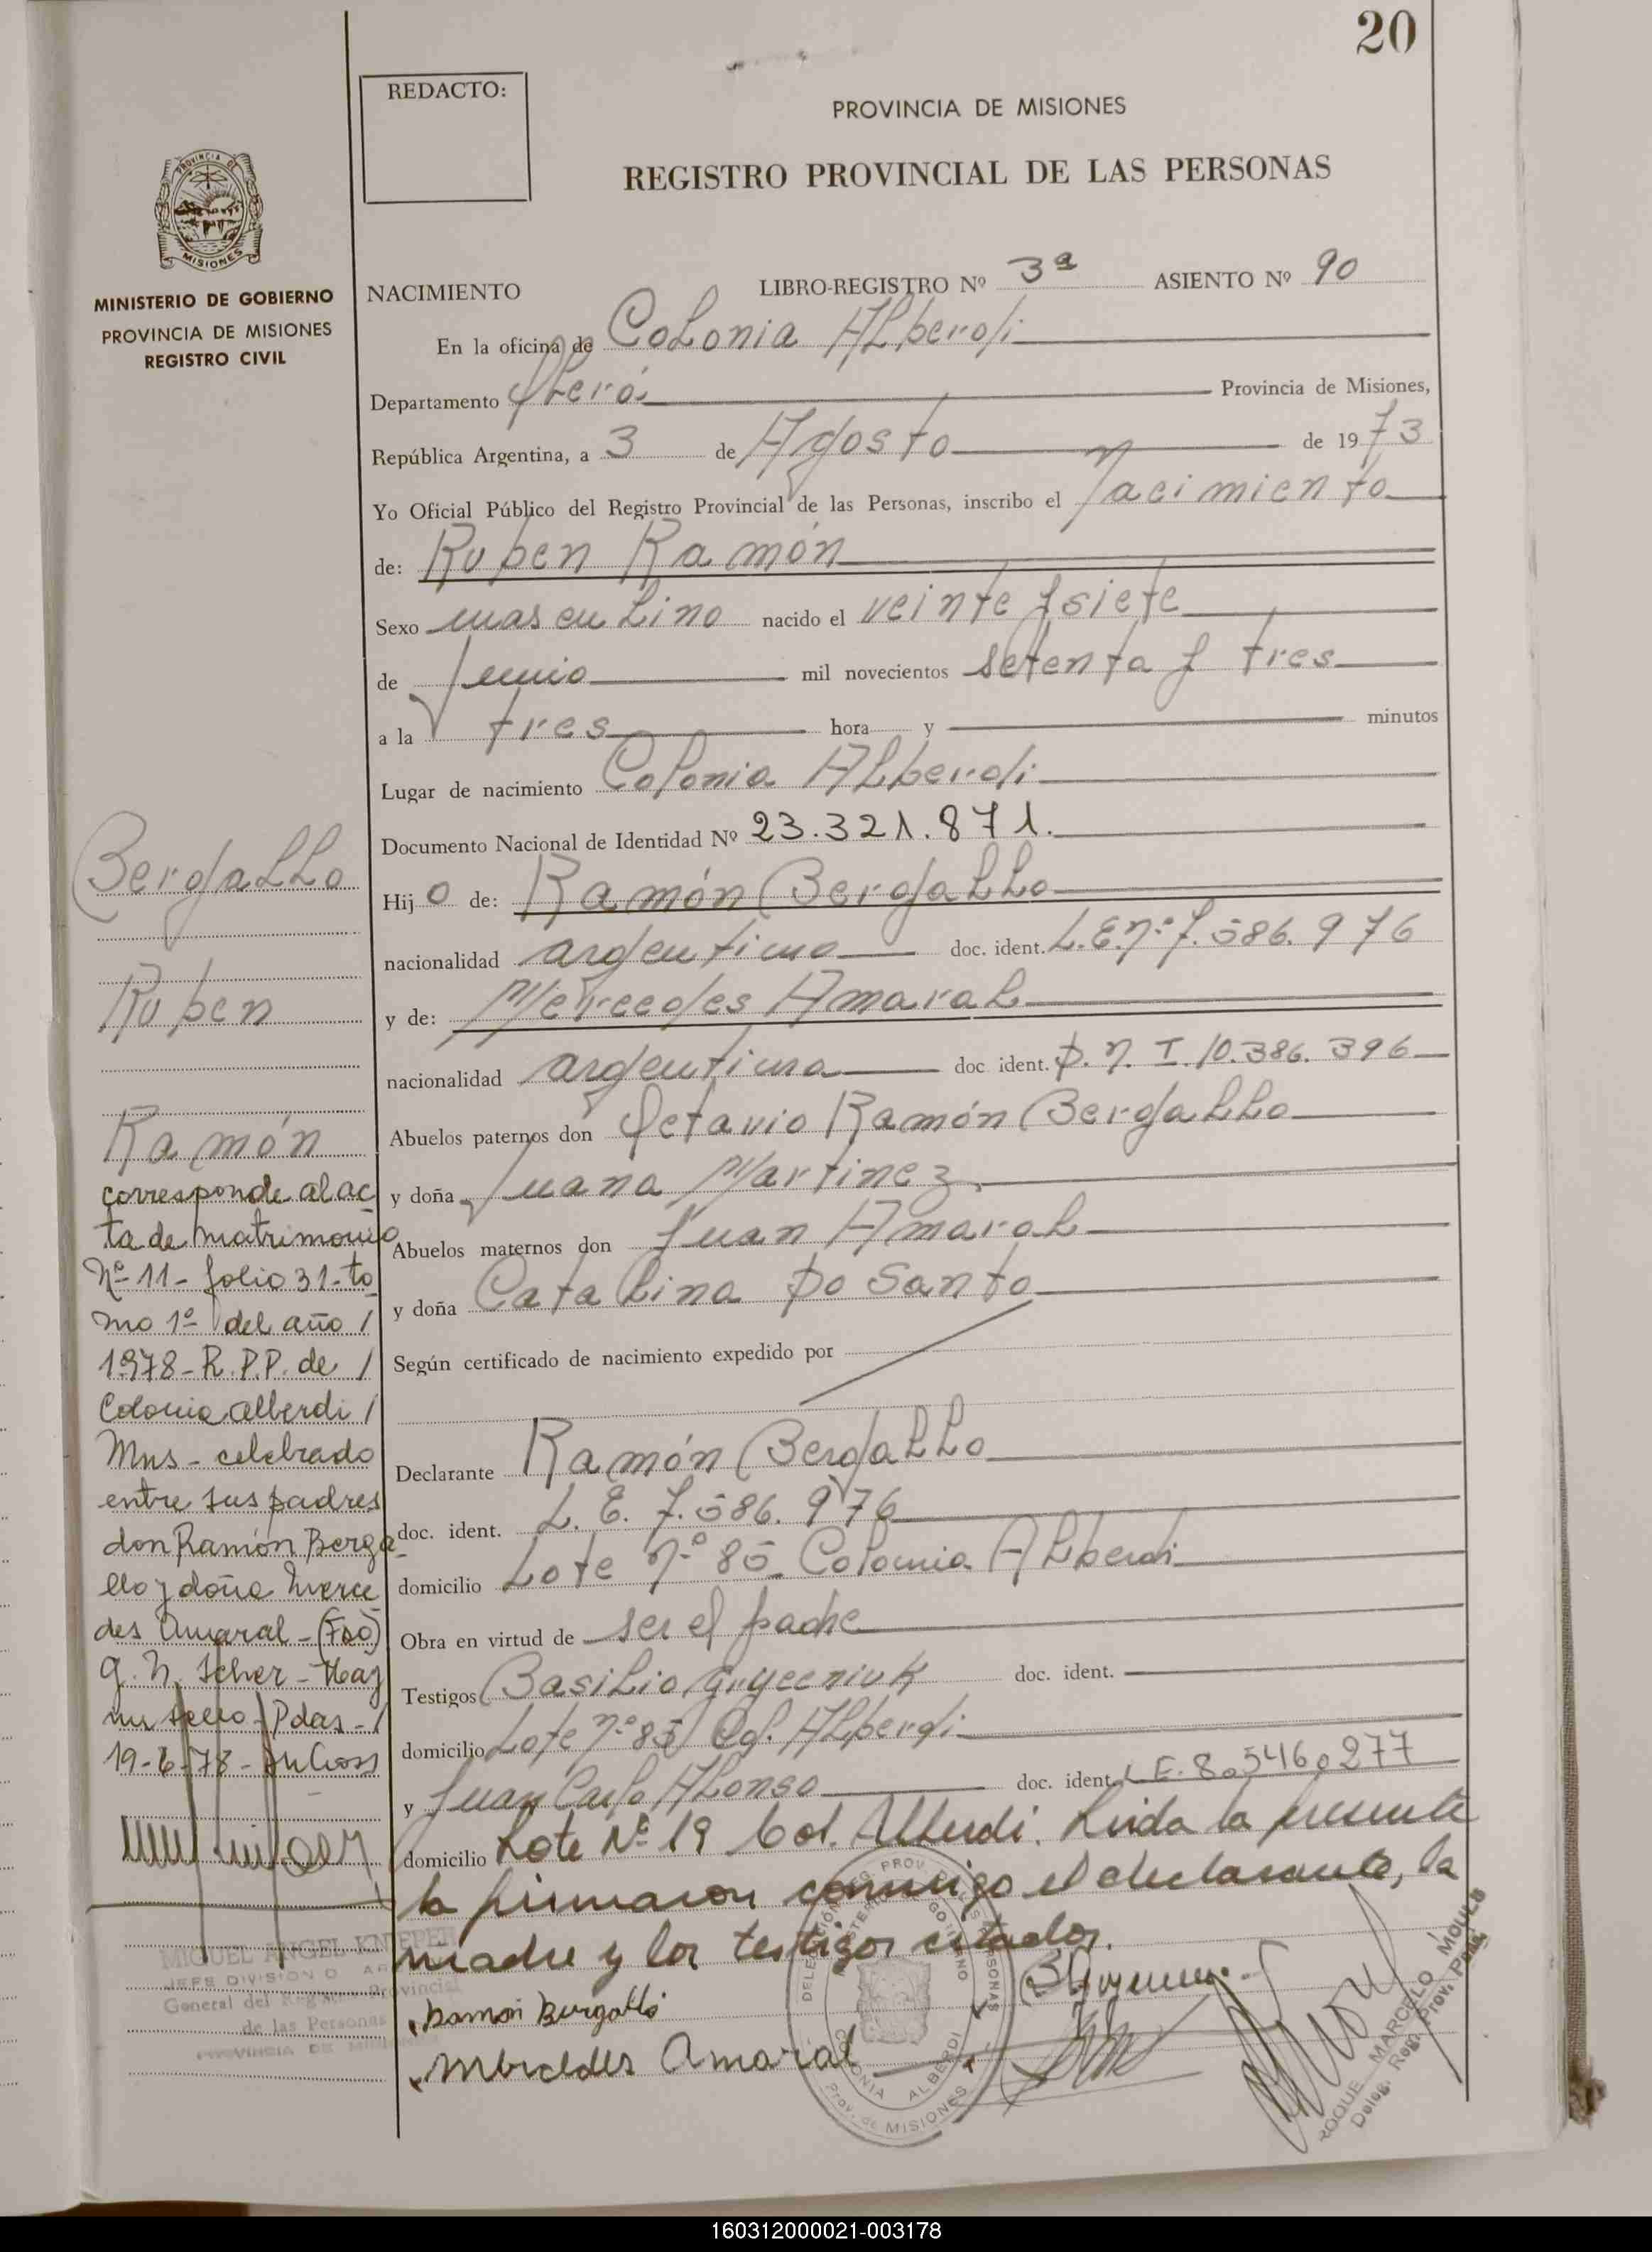 20
REDACTO:
PROVINCIA DE MISIONES
REGISTRO PROVINCIAL DE LAS PERSONAS
PROVINCIA DE
MISIONES
MINISTERIO DE GOBIERNO
PROVINCIA DE MISIONES
REGISTRO CIVIL
NACIMIENTO LIBRO-REGISTRO Nº 3ª ASIENTO Nº 90
En la oficina de Colonia Alberdi
Departamento Oberá Provincia de Misiones,
República Argentina, a 3 de Agosto de 1973
Yo Oficial Público del Registro Provincial de las Personas, inscribo el Nacimiento
de: Ruben Ramón
Sexo masculino nacido el veinte y siete
de Junio mil novecientos setenta y tres
a la tres hora y minutos
Lugar de nacimiento Colonia Alberdi
Documento Nacional de Identidad Nº 23.321.871.
Hijo de: Ramón Bergallo
nacionalidad argentino doc. ident. L.E.Nº 7.586.976
y de: Mercedes Amaral
nacionalidad argentina doc ident. D.N.I. 10.386.396
Abuelos paternos don Octavio Ramón Bergallo
y doña Juana Martinez
Abuelos maternos don Juan Amaral
y doña Catalina Do Santo
Según certificado de nacimiento expedido por
Declarante Ramón Bergallo
doc. ident. L.E. 7.586.976
domicilio Lote Nº 85 Colonia Alberdi
Obra en virtud de ser el padre
Testigos Basilio doc. ident.
domicilio Lote nº 85 Col. Alberdi
y Juan Carlo Alonso doc. ident. L.E. 8.546.277
domicilio Lote Nº 19 Col. Alberdi. Leida la presente
la firmaron conmigo el declarante, la
madre y los testigos citados.
Ramon Bergallo
Mercedes Amaral
Bergallo
Ruben
Ramón
corresponde al ac
ta de matrimonio
Nº 11 - folio 31 - to
mo 1º del año /
1978 - R.P.P. de /
Colonia Alberdi /
Mns - celebrado
entre sus padres
don Ramón Berga
llo y doña Merce
des Amaral - (Fdo)
G. N. Scher - Hay
un sello - Pdas - /
19-6-78 -
MIGUEL ANGEL KNEPER
JEFE DIVISION
General del Registro Provincial
de las Personas
PROVINCIA DE MISIONES
COLONIA ALBERDI
Prov. de MISIONES
ROQUE MARCELO MOULO
Deleg. Reg. Prov. Pers.
160312000021-003178